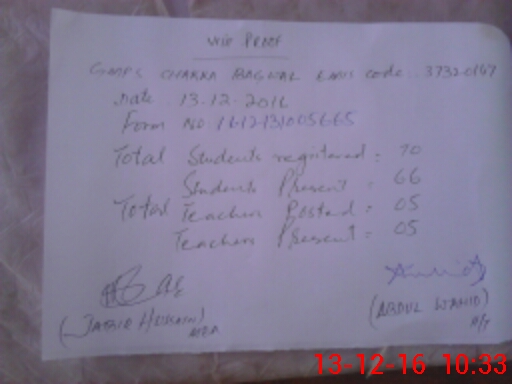 PROOF
GMPS CHAKRA BAGWAL EMIS code: 37320167
Date: 13.12.2016
Form No: 1612131005665
Total Students registered: 70
Students Present = 66
Total Teachers Postad = 05
Teachers Present = 05
(JABIR HUSSAIN) (ABDUL WAHID)
MEA
13-12-16 10:33